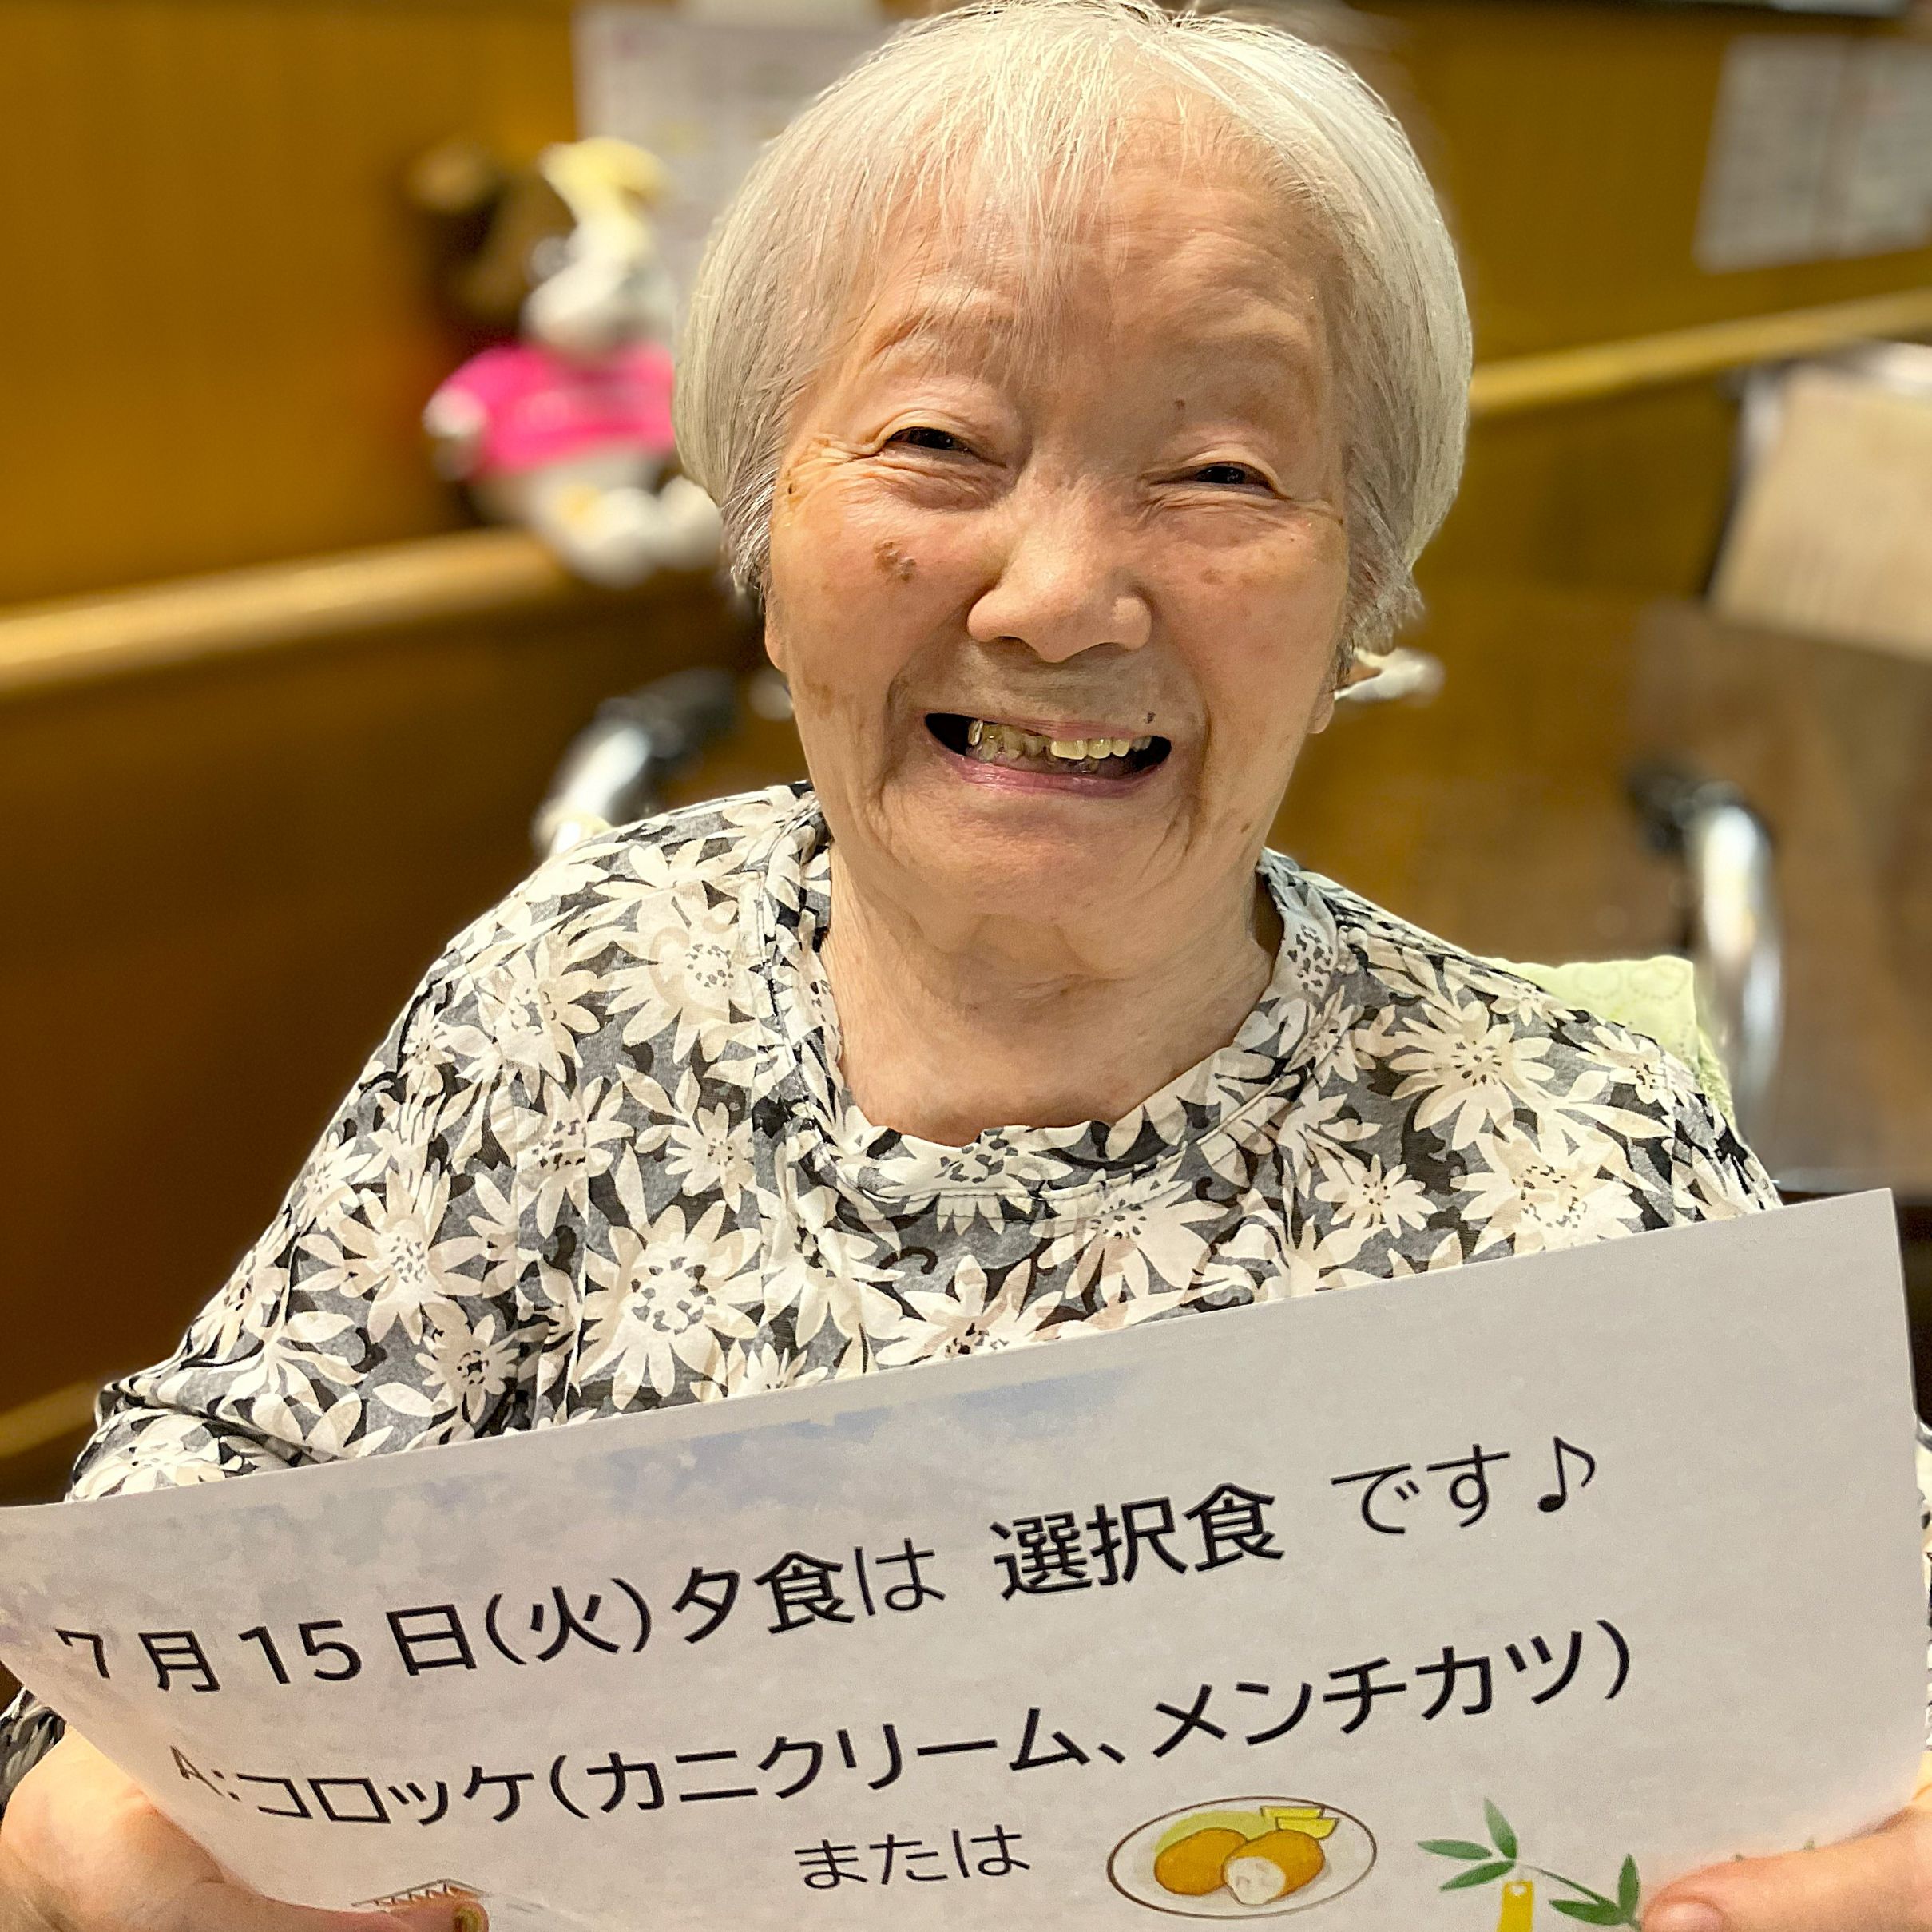 7月15日(火)夕食は 選択食 です♪
A:コロッケ(カニクリーム、メンチカツ)
または